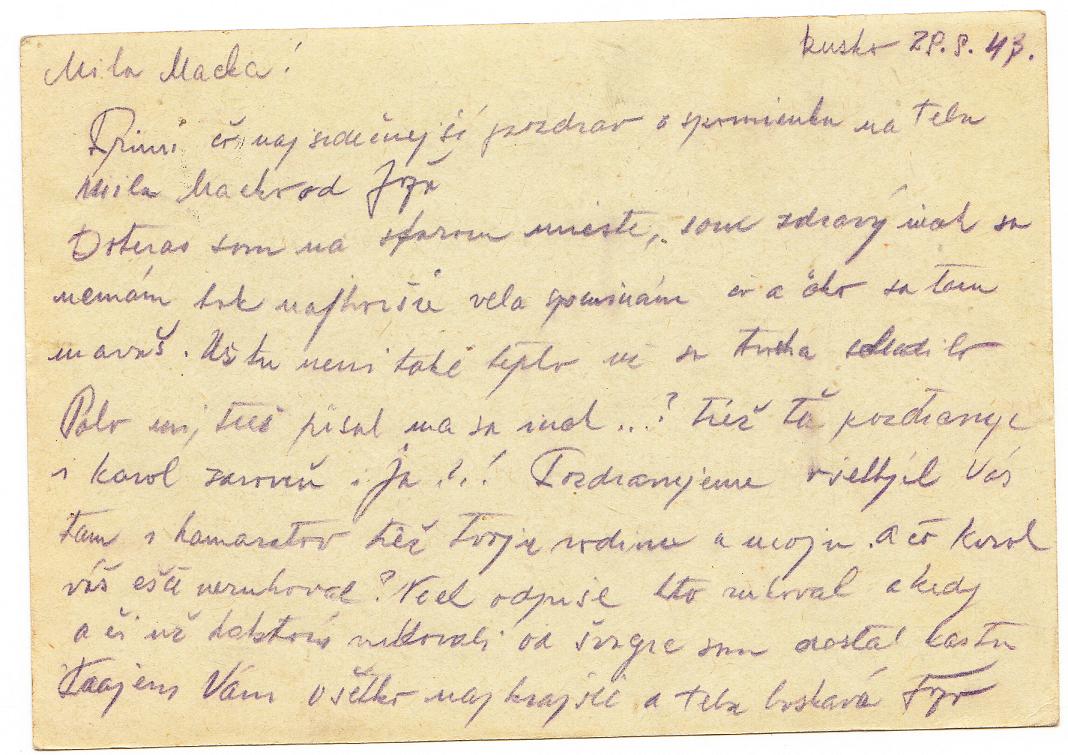 Mila Macka!
Rusko 28.8.43.
Primi čo najsrdečnejší pozdrav a spomienku na Teba
Mila Macko od Jožu
Doteraz som na starom mieste, som zdravý inak sa
nemám tak najhoršie vela spominám čo a ako sa tam
mavaš. Už tu neni také teplo už sa trocha schladilo
Palo mi, tiež pisal ma sa inak ..? tiež ťa pozdravuje
i karol zaroveň i Ja!.! Pozdravujeme všetkých Vás
tam i kamaratov tiež Tvoju rodinu a moju. a čo Karol
váš ešte nerukoval? Nech odpiše kto rukoval a kedy
a či už taktori rukovali od švagra som dostal kartu
Prajem Vám všetko najkrajšie a teba boskáva Jožo